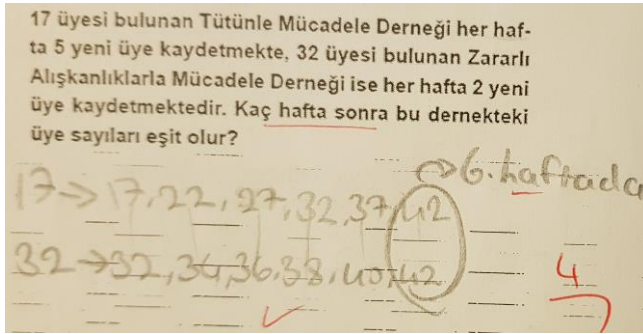 17 üyesi bulunan Tütünle Mücadele Derneği her haf-
ta 5 yeni üye kaydetmekte, 32 üyesi bulunan Zararlı
Alışkanlıklarla Mücadele Derneği ise her hafta 2 yeni
üye kaydetmektedir. Kaç hafta sonra bu dernekteki
üye sayıları eşit olur?
→ 6. haftada
17 → 17, 22, 27, 32, 37, 42
32 → 32, 34, 36, 38, 40, 42
4